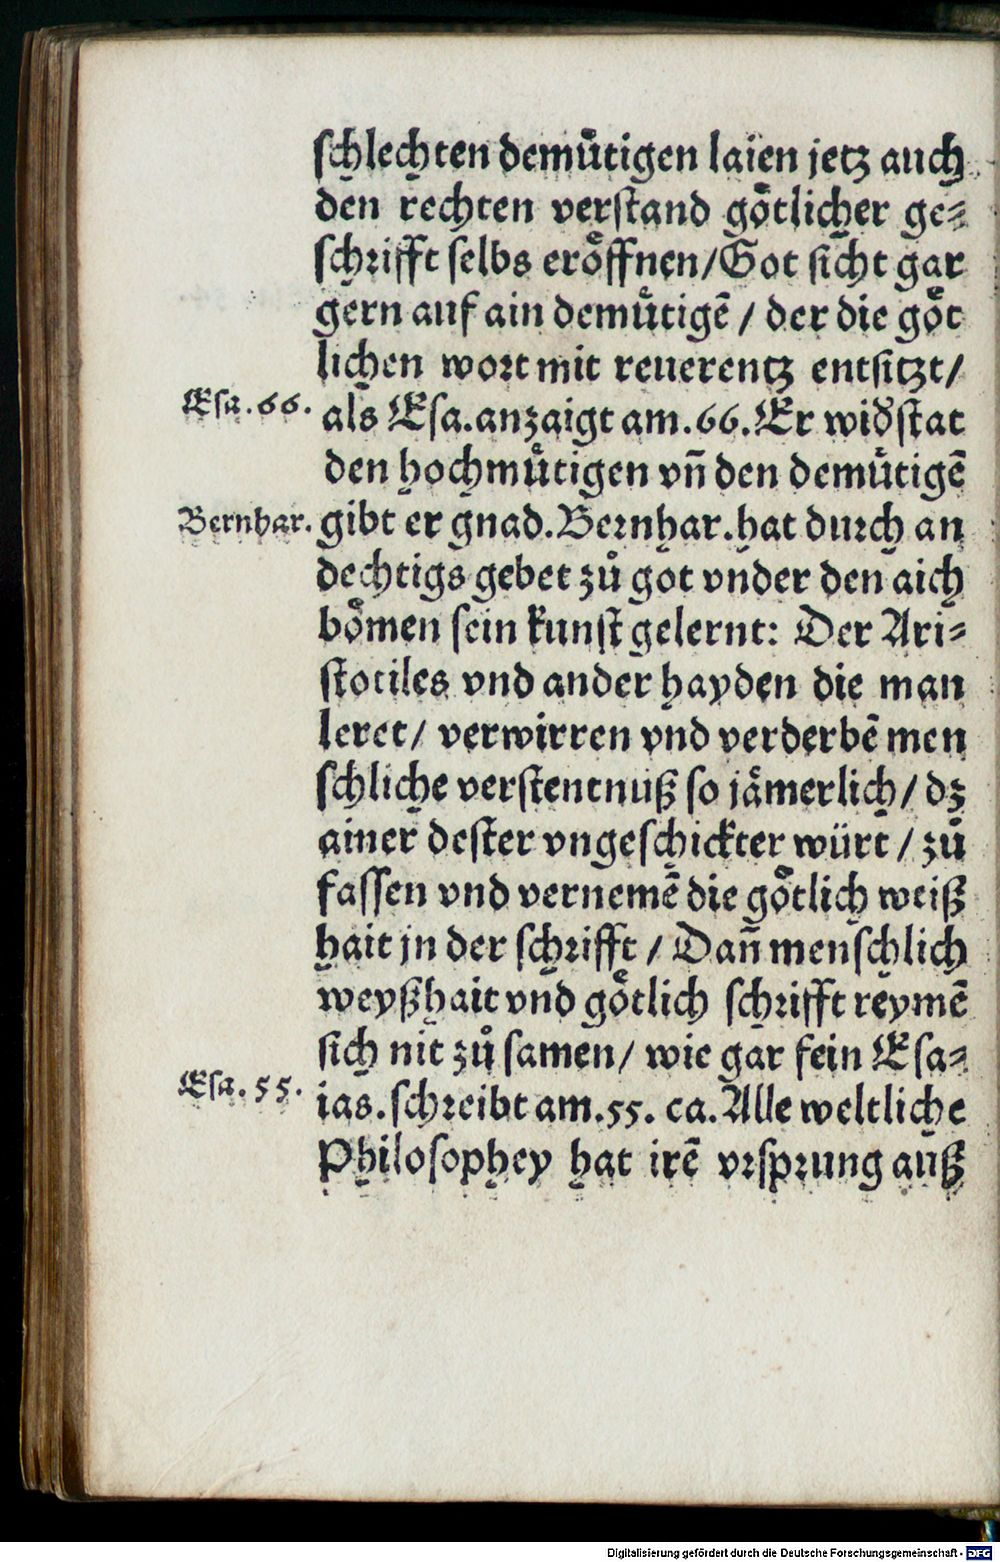 ſchlechten demuͤtigen laien jetz auch
den rechten verſtand goͤtlicher ge⸗
ſchrifft ſelbs eroͤffnen/Got ſicht gar
gern auf ain demuͤtigē / der die goͤt
lichen wort mit reuerentz entſitzt/
Eſa. 66.
als Eſa. anzaigt am. 66. Er widſtat
den hochmuͤtigen vn̄ den demuͤtigē
Bernhar.
gibt er gnad. Bernhar. hat durch an
dechtigs gebet zuͦ got vnder den aich
boͤmen ſein kunſt gelernt: Der Ari⸗
ſtotiles vnd ander hayden die man
leret/ verwirren vnd verderbē men
ſchliche verſtentnuß ſo jaͤmerlich/ dz
ainer deſter vngeſchickter würt / zuͦ
faſſen vnd vernemē die goͤtlich weiß
hait jn der ſchrifft / Dan̄ menſchlich
weyßhait vnd goͤtlich ſchrifft reymē
ſich nit zuͦ ſamen/ wie gar fein Eſa⸗
Eſa. 55.
ias. ſchreibt am. 55. ca. Alle weltliche
Philoſophey hat irē vrſprung auß
Digitalisierung gefördert durch die Deutsche Forschungsgemeinschaft - DFG